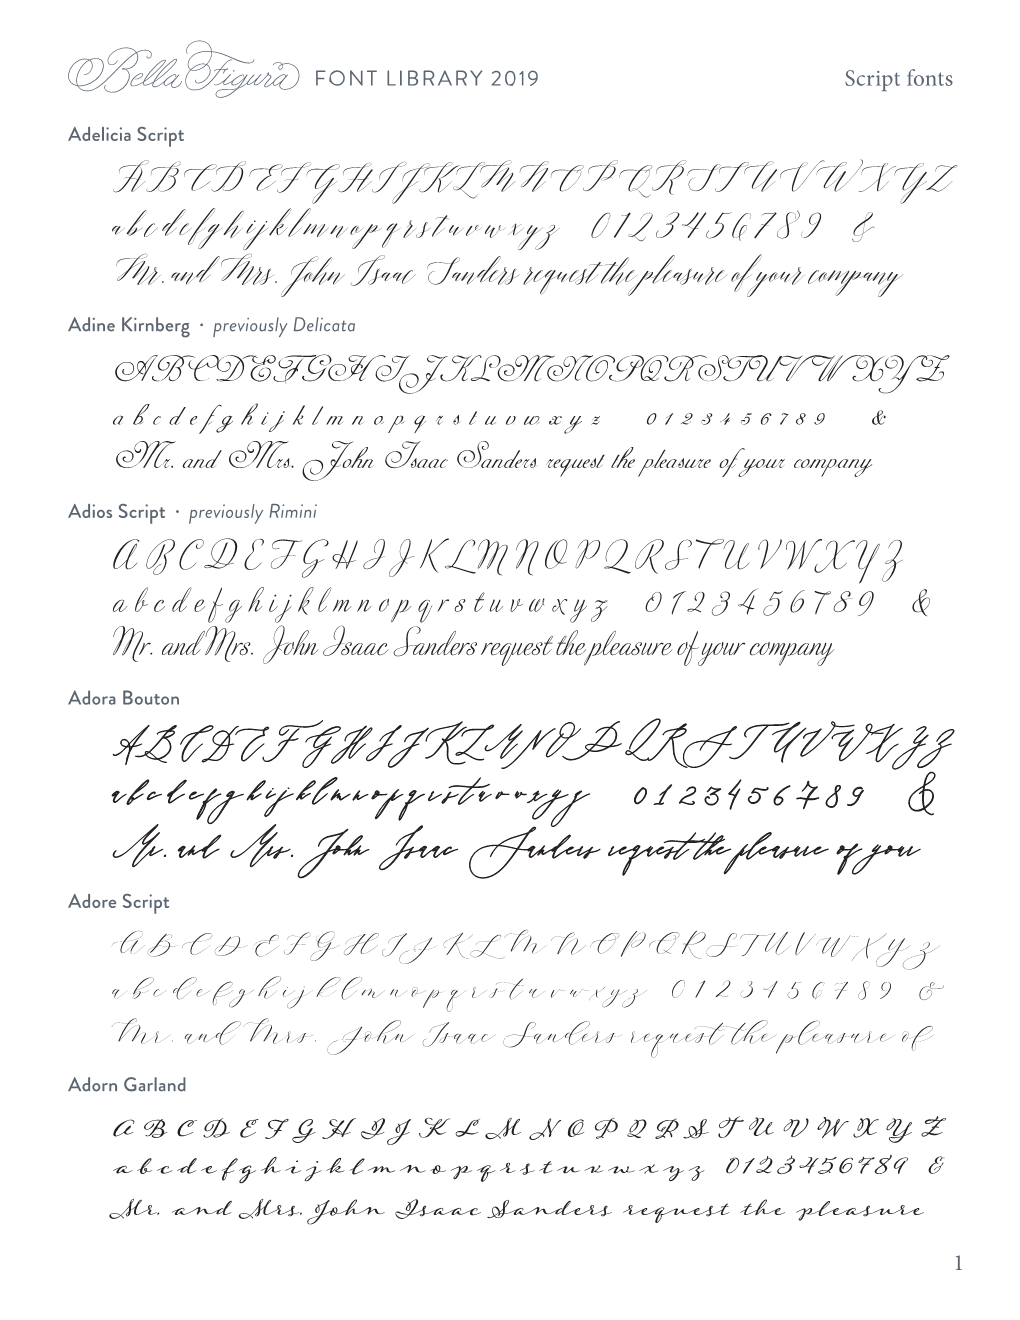 Bella Figura FONT LIBRARY 2019 Script fonts
Adelicia Script
A B C D E F G H I J K L M N O P Q R S T U V W X Y Z
a b c d e f g h i j k l m n o p q r s t u v w x y z 0 1 2 3 4 5 6 7 8 9 &
Mr. and Mrs. John Isaac Sanders request the pleasure of your company
Adine Kirnberg · previously Delicata
A B C D E F G H I J K L M N O P Q R S T U V W X Y Z
a b c d e f g h i j k l m n o p q r s t u v w x y z 0 1 2 3 4 5 6 7 8 9 &
Mr. and Mrs. John Isaac Sanders request the pleasure of your company
Adios Script · previously Rimini
A B C D E F G H I J K L M N O P Q R S T U V W X Y Z
a b c d e f g h i j k l m n o p q r s t u v w x y z 0 1 2 3 4 5 6 7 8 9 &
Mr. and Mrs. John Isaac Sanders request the pleasure of your company
Adora Bouton
A B C D E F G H I J K L M N O P Q R S T U V W X Y Z
a b c d e f g h i j k l m n o p q r s t u v w x y z 0 1 2 3 4 5 6 7 8 9 &
Mr. and Mrs. John Isaac Sanders request the pleasure of your
Adore Script
A B C D E F G H I J K L M N O P Q R S T U V W X Y Z
a b c d e f g h i j k l m n o p q r s t u v w x y z 0 1 2 3 4 5 6 7 8 9 &
Mr. and Mrs. John Isaac Sanders request the pleasure of
Adorn Garland
A B C D E F G H I J K L M N O P Q R S T U V W X Y Z
a b c d e f g h i j k l m n o p q r s t u v w x y z 0 1 2 3 4 5 6 7 8 9 &
Mr. and Mrs. John Isaac Sanders request the pleasure
1